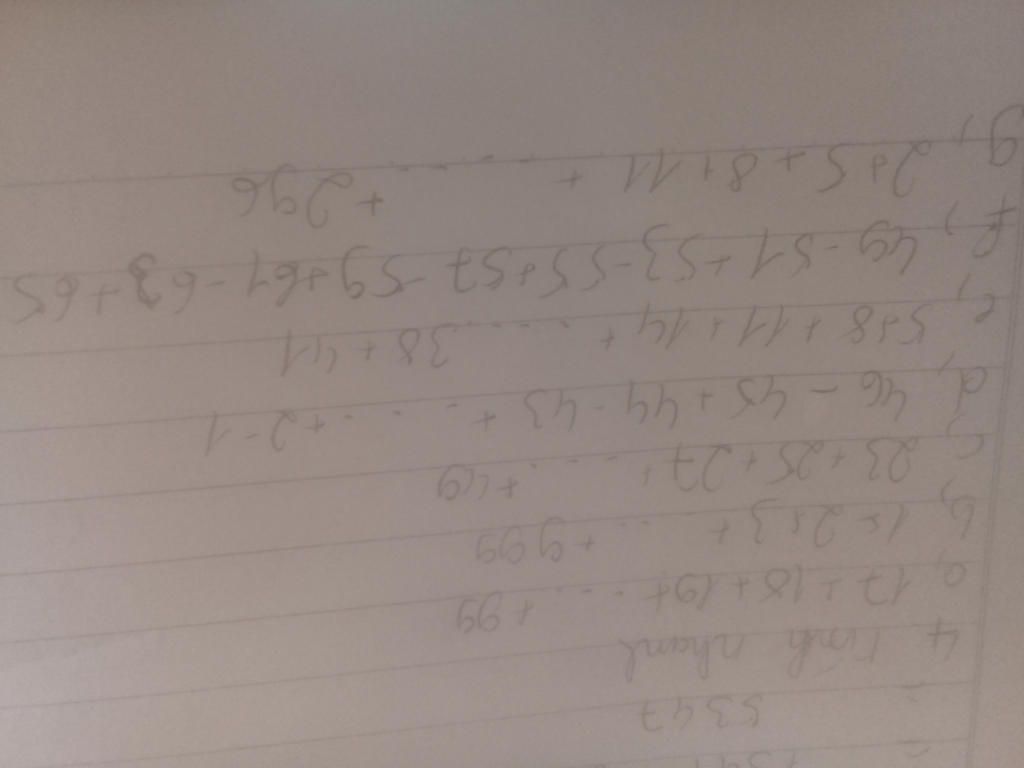 = 5347
4 Tính nhanh
a, 17 + 18 + 19 + ...... + 99
b, 1 + 2 + 3 + ...... + 999
c, 23 + 25 + 27 + ...... + 49
d, 46 - 45 + 44 - 43 + ...... + 2 - 1
e, 5 + 8 + 11 + 14 + ...... 38 + 41
f, 49 - 51 + 53 - 55 + 57 - 59 + 61 - 63 + 65
g, 2 + 5 + 8 + 11 + ...... + 296